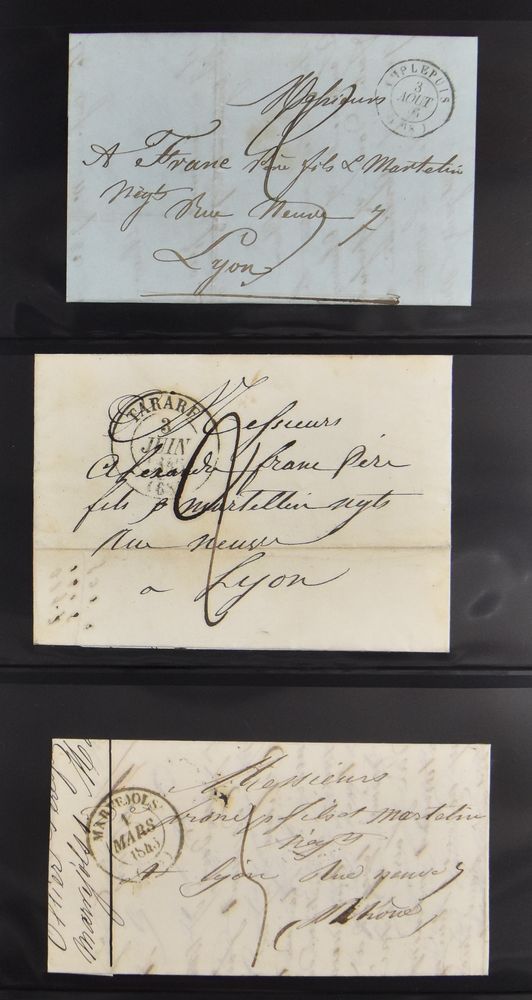 AMPLEPUIS
3
AOUT
(68)
Messieurs
A Franc Père fils & Martelin
Negts Rue Neuve 7
Lyon
TARARE
3
JUIN
(68)
Messieurs
Alexandre franc Père
fils & martellin negts
Rue neuve
a Lyon
MARVEJOLS
1
MARS
1845
Messieurs
franc p fils & martelin
Negts
Lyon Rue neuve 7
Rhône
marvejols